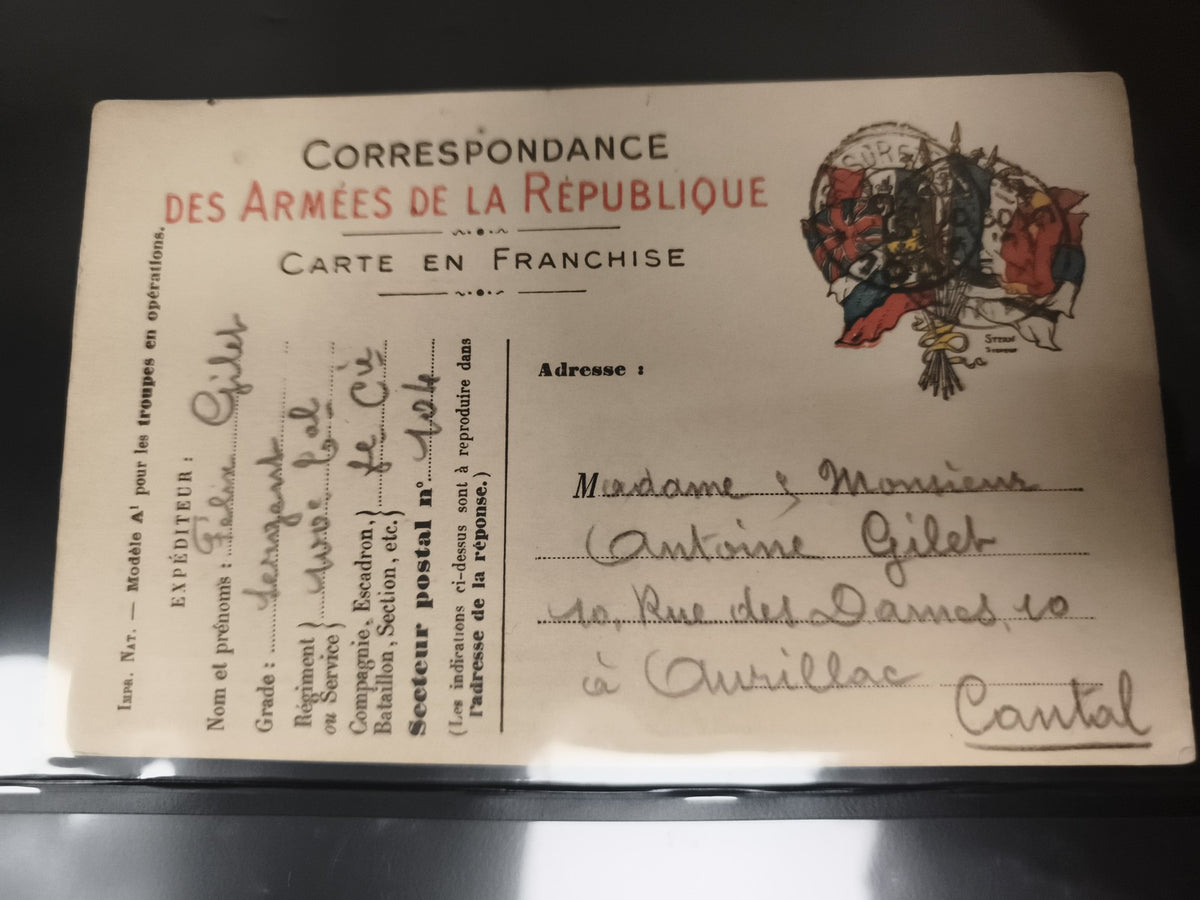 CORRESPONDANCE
DES ARMÉES DE LA RÉPUBLIQUE
CARTE EN FRANCHISE
IMPR. NAT. — Modèle A¹ pour les troupes en opérations.
EXPÉDITEUR :
Nom et prénoms : Félix Gilet
Grade : Sergent
Régiment
ou Service
Compagnie, Escadron,
Bataillon, Section, etc. Cie
Secteur postal n° 104
(Les indications ci-dessus sont à reproduire dans
l'adresse de la réponse.)
STERN
Adresse :
Madame & Monsieur
Antoine Gilet
10, Rue des Dames, 10
à Aurillac
Cantal